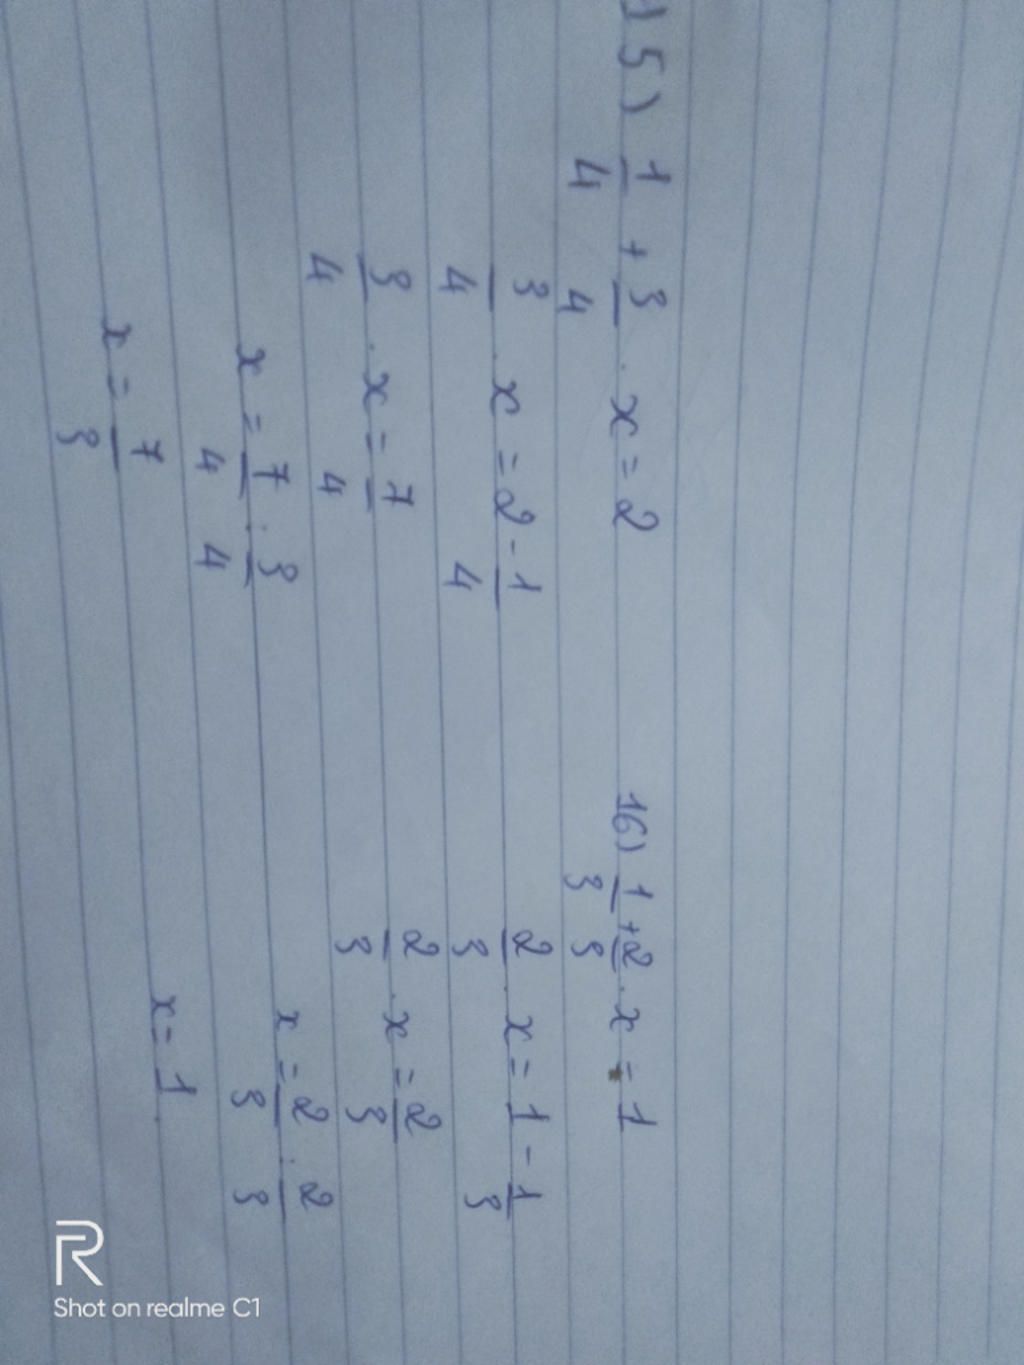 15) 1/4 + 3/4 . x = 2
3/4 . x = 2 - 1/4
3/4 . x = 7/4
x = 7/4 : 3/4
x = 7/3
16) 1/3 + 2/3 . x = 1
2/3 . x = 1 - 1/3
2/3 . x = 2/3
x = 2/3 : 2/3
x = 1.
R
Shot on realme C1